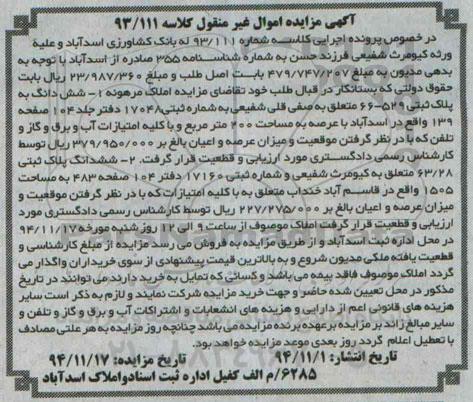 آگهی مزایده اموال غیر منقول کلاسه ۹۳/۱۱۱
در خصوص پرونده اجرایی کلاسه شماره ۹۳/۱۱۱ له بانک کشاورزی اسدآباد و علیه
ورثه کیومرث شفیعی فرزند حسن به شماره شناسنامه ۳۵۵ صادره از اسدآباد با توجه به
بدهی مدیون به مبلغ ۴۷۹/۷۴۷/۲۰۷ بابت اصل طلب و مبلغ ۲۳/۹۸۷/۳۶۰ ریال بابت
حقوق دولتی که بستانکار در قبال طلب خود تقاضای مزایده املاک مرهونه ۱- شش دانگ به
پلاک ثبتی ۵۲۹-۶۶ متعلق به صفی قلی شفیعی به شماره ثبتی ۱۷۰۴۸ دفتر جلد ۱۰۴ صفحه
۱۳۹ واقع در اسدآباد با عرصه به مساحت ۲۰۰ متر مربع و با کلیه امتیازات آب و برق و گاز و
تلفن که با در نظر گرفتن موقعیت و میزان عرصه و اعیان بالغ بر ۳۷۹/۹۵۰/۰۰۰ ریال توسط
کارشناس رسمی دادگستری مورد ارزیابی و قطعیت قرار گرفت. ۲- ششدانگ پلاک ثبتی
۶۳/۲۸ متعلق به کیومرث شفیعی و شماره ثبتی ۱۷۱۶۰ دفتر ۱۰۴ صفحه ۴۸۳ به مساحت
۵۰۵ واقع در قاسم آباد خنداب متعلق به با کلیه امتیازات که با در نظر گرفتن موقعیت و
میزان عرصه و اعیان بالغ بر ۲۲۷/۲۷۵/۰۰۰ ریال توسط کارشناس رسمی دادگستری مورد
ارزیابی و قطعیت قرار گرفت املاک موصوف از ساعت ۹ الی ۱۲ روز شنبه مورخه ۹۴/۱۱/۱۷
در محل اداره ثبت اسدآباد و از طریق مزایده به فروش می رسد مزایده از مبلغ کارشناسی و
قطعیت یافته ملکی مدیون شروع و به بالاترین قیمت پیشنهادی از سوی خریداران واگذار می
گردد املاک موصوف فاقد بیمه می باشد و کسانی که تمایل به خرید دارند می توانند در تاریخ
مذکور در محل تعیین شده حاضر و جهت خرید مزایده شرکت نمایند و لازم به ذکر است سایر
هزینه های قانونی اعم از دارایی و هزینه های انشعابات و اشتراکات آب و برق و گاز و تلفن و
سایر مبالغ زائد بر مزایده بر عهده برنده مزایده می باشد چنانچه روز مزایده به هر علتی مصادف
با تعطیل اعلام گردد روز بعدی موعد مزایده خواهد بود.
تاریخ انتشار: ۹۴/۱۱/۱ تاریخ مزایده: ۹۴/۱۱/۱۷
۶۲۸۵/م الف کفیل اداره ثبت اسناد و املاک اسدآباد